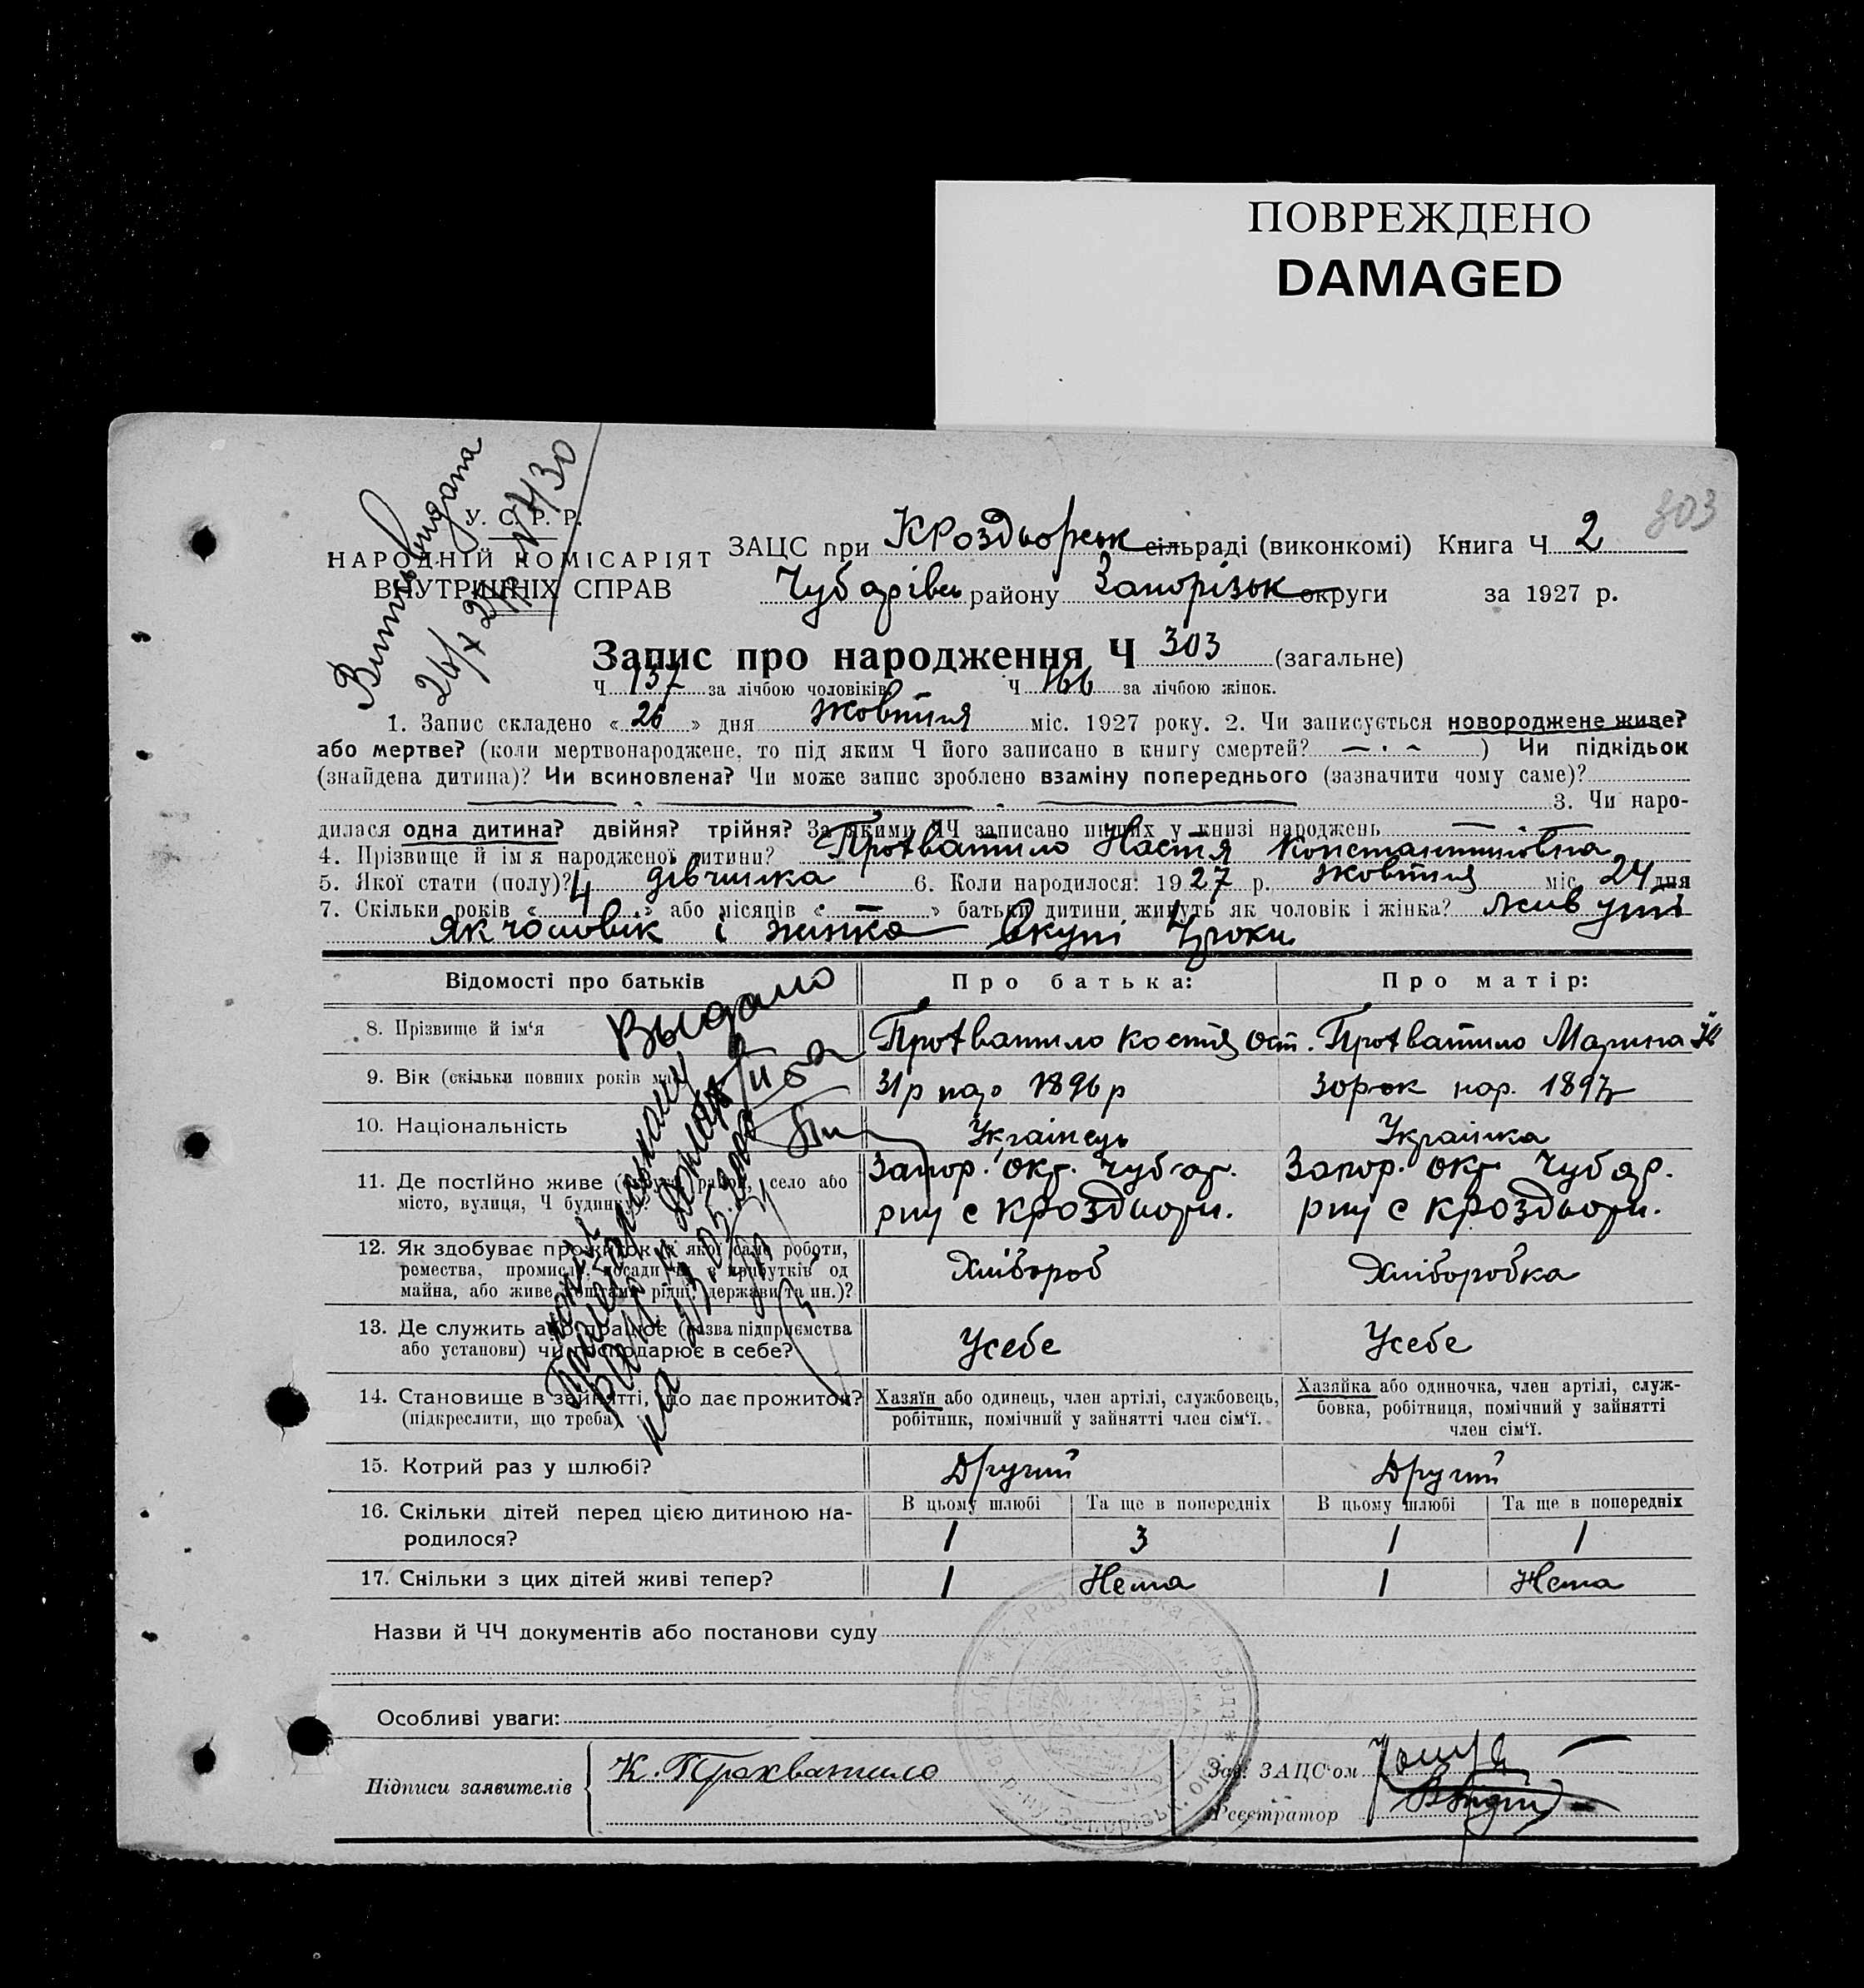 ПОВРЕЖДЕНО
DAMAGED
303
Витяг видана
26/X 27р №730
У. С. Р. Р.
НАРОДНІЙ КОМІСАРІЯТ
ВНУТРІШНІХ СПРАВ
ЗАЦС при КРоздьорськ сільраді (виконкомі) Книга Ч 2
Чубарівсь району Запорізьк округи за 1927 р.
Запис про народження Ч 303 (загальне)
Ч 137 за лічбою чоловіків. Ч 166 за лічбою жінок.
1. Запис складено « 26 » дня жовтня міс. 1927 року. 2. Чи записується новороджене живе?
або мертве? (коли мертвонароджене, то під яким Ч його записано в книгу смертей? — . — ) Чи підкідьок
(знайдена дитина)? Чи всиновлена? Чи може запис зроблено взаміну попереднього (зазначити чому саме)?
3. Чи наро-
дилася одна дитина? двійня? трійня? За якими ЧЧ записано інших у книзі народжень — . —
4. Прізвище й ім'я народженої дитини? Прохватило Настя Константиновна
5. Якої стати (полу)? дівчинка 6. Коли народилося: 1927 р. жовтня міс. 24 дня
7. Скільки років « 4 » або місяців « — » батьки дитини живуть як чоловік і жінка? живуть
як чоловік і жинка вкупі 4 роки
Відомості про батьків Про батька: Про матір:
8. Прізвище й ім'я Прохватило Костя Ост. Прохватило Марина
9. Вік (скільки повних років має) 31р нар 1896р 30рок нар. 1897р
10. Національність Українець Українка
11. Де постійно живе (округа, район, село або
місто, вулиця, Ч будинку)?
Запор. окр. Чубар. Запор. окр. Чубар.
рну с КРоздьори. рну с КРоздьори.
12. Як здобуває прожиток (з якої саме роботи,
ремества, промислу, посади чи з прибутків од
майна, або живе коштами рідні, держави та ин.)?
Хлібороб Хліборобка
13. Де служить або працює (назва підприємства
або установи) чи господарює в себе?
Усебе Усебе
14. Становище в зайнятті, що дає прожиток?
(підкреслити, що треба)
Хазяїн або одинець, член артілі, службовець,
робітник, помічний у зайнятті член сім'ї.
Хазяйка або одиночка, член артілі, служ-
бовка, робітниця, помічний у зайнятті
член сім'ї.
15. Котрий раз у шлюбі? Другий Другий
16. Скільки дітей перед цією дитиною на-
родилося?
В цьому шлюбі Та ще в попередніх В цьому шлюбі Та ще в попередніх
1 3 1 1
17. Скільки з цих дітей живі тепер? 1 Нема 1 Нема
Выдано
Назви й ЧЧ документів або постанови суду
Особливі уваги:
Підписи заявителів К. Прохватило
Зав. ЗАЦС'ом
Реєстратор